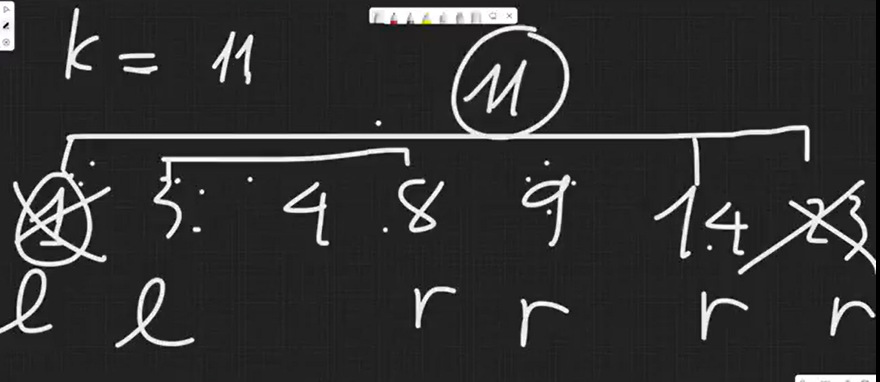 k = 11
11
1 3 4 8 9 14 23
l l r r r r